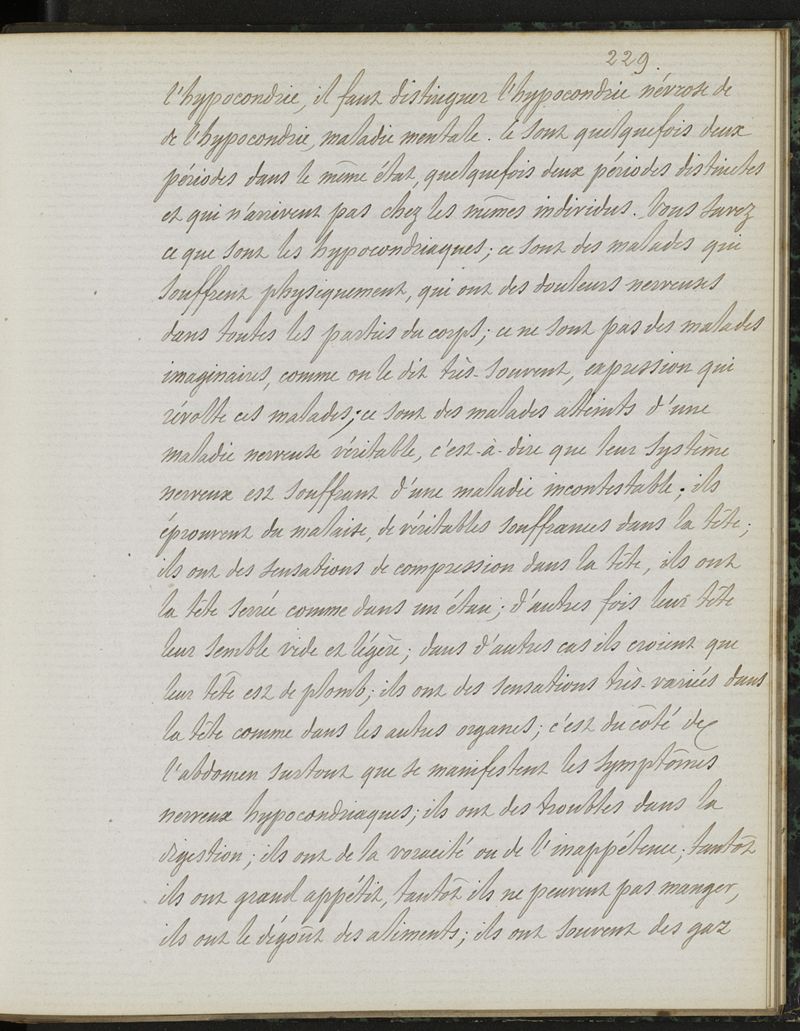 229.
l'hypocondrie, il faut distinguer l'hypocondrie névrose de
de l'hypocondrie, maladie mentale. Ce sont quelquefois deux
périodes dans le même état, quelquefois deux périodes distinctes
et qui n'arrivent pas chez les mêmes individus. Vous savez
ce que sont les hypocondriaques; ce sont des malades qui
souffrent physiquement, qui ont des douleurs nerveuses
dans toutes les parties du corps; ce ne sont pas des malades
imaginaires, comme on le dit très-souvent, expression qui
révolte ces malades; ce sont des malades atteints d'une
maladie nerveuse véritable, c'est-à-dire que leur système
nerveux est souffrant d'une maladie incontestable; ils
éprouvent du malaise, de véritables souffrances dans la tête;
ils ont des sensations de compression dans la tête, ils ont
la tête serrée comme dans un étau; d'autres fois leur tête
leur semble vide et légère; dans d'autres cas ils croient que
leur tête est de plomb; ils ont des sensations très-variées dans
la tête comme dans les autres organes; c'est du côté de
l'abdomen surtout que se manifestent les symptômes
nerveux hypocondriaques; ils ont des troubles dans la
digestion; ils ont de la voracité ou de l'inappétence; tantôt
ils ont grand appétit, tantôt ils ne peuvent pas manger,
ils ont le dégoût des aliments; ils ont souvent des gaz